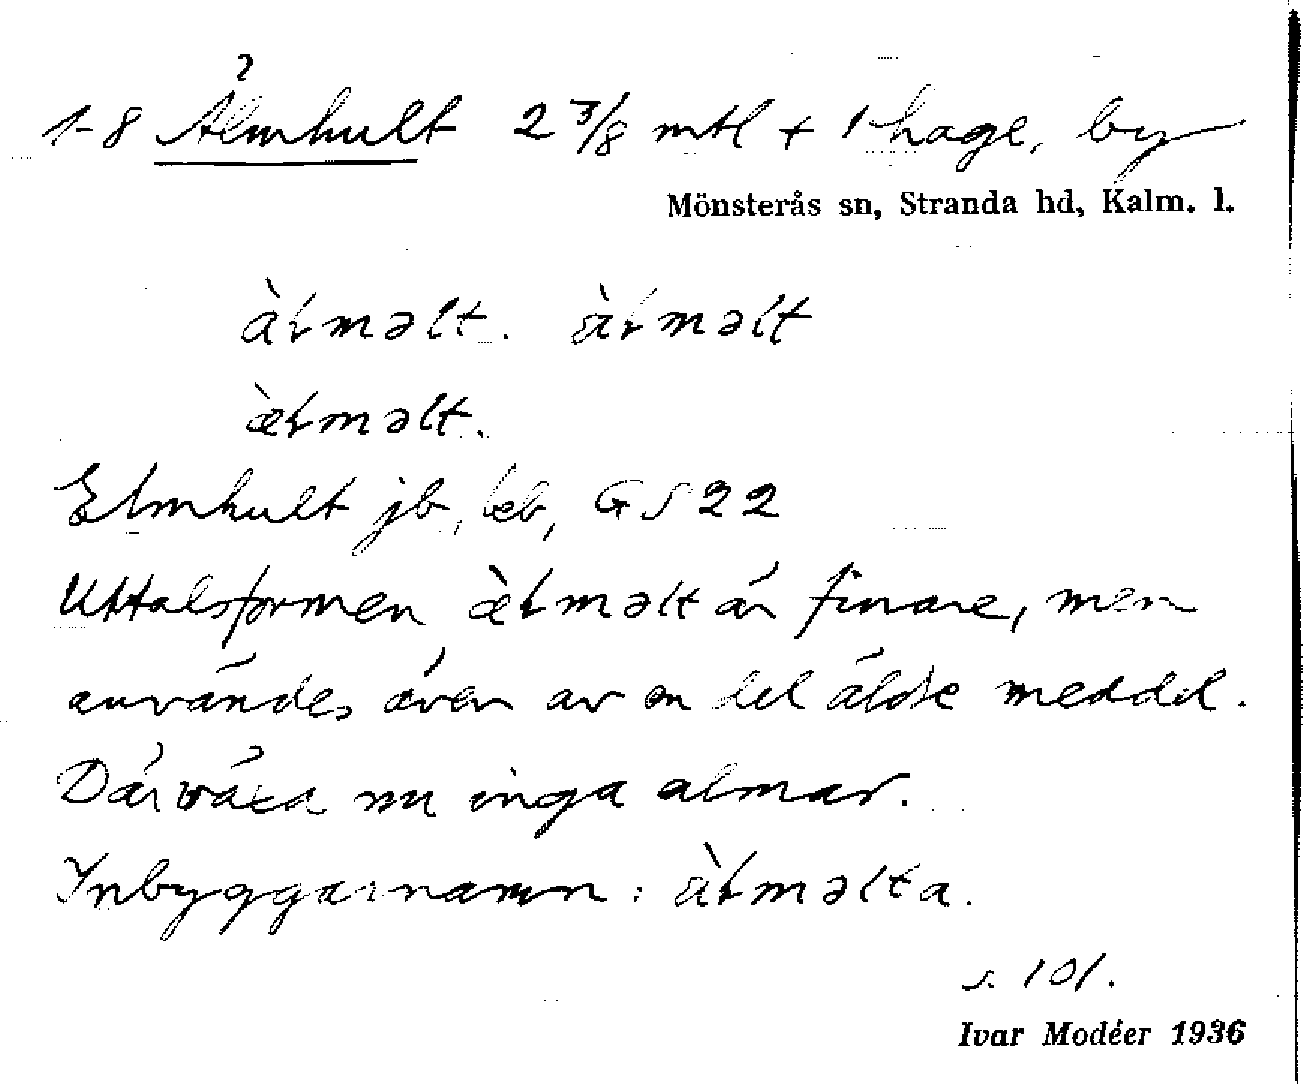 1-8 Älmhult 2 3/8 mtl + 1 hage, by
Mönsterås sn, Stranda hd, Kalm. l.
àłməlt. àłməlt
æ̀łməlt.
Elmhult jb, leb, GS 22
Uttalsformen æ̀łməlt är finare, men
användes även av en del äldre meddel.
Där växa nu inga almar.
Inbyggarnamn: àłməlta.
s. 101.
Ivar Modéer 1936